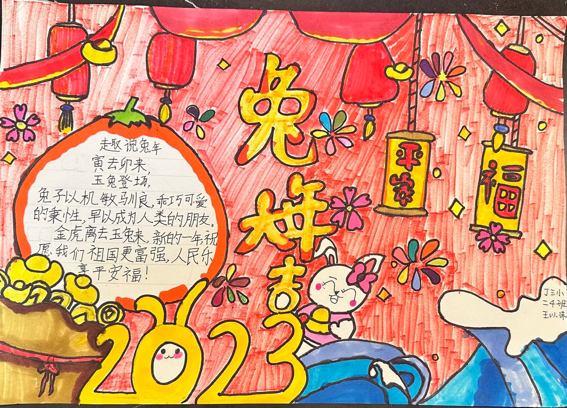 兔年吉
平安
福
趣祝兔年
寅去卯来,
玉兔登场,
兔子以机敏驯良,乖巧可爱
的秉性,早以成为人类的朋友。
金虎离去玉兔来,新的一年祝
愿我们祖国更富强,人民乐
享平安福!
2023
二4班